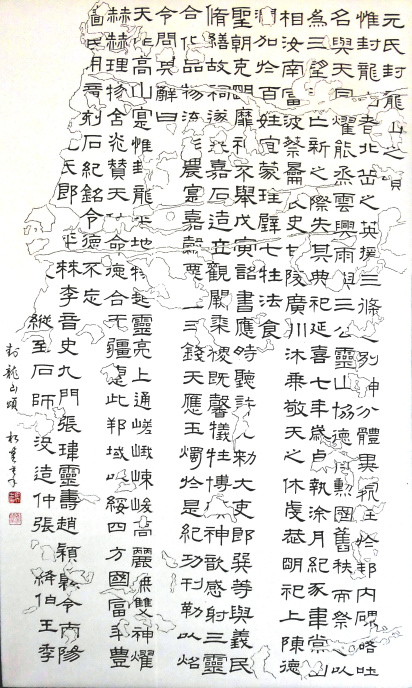 元氏封龍山之頌
惟封龍山者北岳之英援三條之別神分體異處在於邦內磥硌吐
名與天同燿能烝雲興雨與三公靈山協德齊勳國舊秩而祭之以
為三望遭亡新之際失其典祀延熹七年歲貞執涂月紀豕韋常山
相汝南富波蔡長史甘陵廣川沐乘敬天之休虔恭明祀上陳德
潤加於百姓宜蒙珪璧七牲法食
聖朝克明靡神不舉戊寅詔書應時聽許允敕大吏郎巽等與義民
脩繕故祠遂采嘉石造立觀闕黍稷既馨犧牲博碩神歆感射三靈
合化品物流形農寔嘉穀粟至三錢天應玉燭於是紀功刊勒以炤
令問其辭曰
天作高山寔惟封龍平地特起靈亮上通嵯峨崠峻高麗無雙神燿
赫赫理物含光贊天休命德合无疆惠此邦域以綏四方國富年豐
穡民用章刻石紀銘令德不忘
元氏郎平棘李音史九門張瑋靈壽趙穎縣令南陽
縱至石師造仲張伯王季
封龍山頌